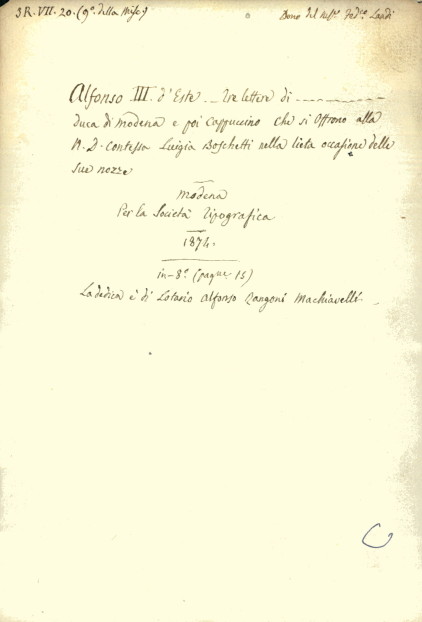 3R. VII. 20. (9°. della Misc.)
Dono del Fed.co Landi
Alfonso III. d'Este _ Tre lettere di ----------
duca di Modena e poi Cappuccino che si offrono alla
N. D. Contessa Luigia Boschetti nella lieta occasione delle
sue nozze
Modena
Per la Società Tipografica
1874.
in-8° (pagne 15)
La dedica è di Lotario Alfonso Rangoni Machiavelli.
C